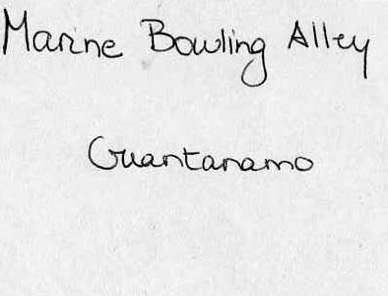 Marine Bowling Alley
Guantanamo